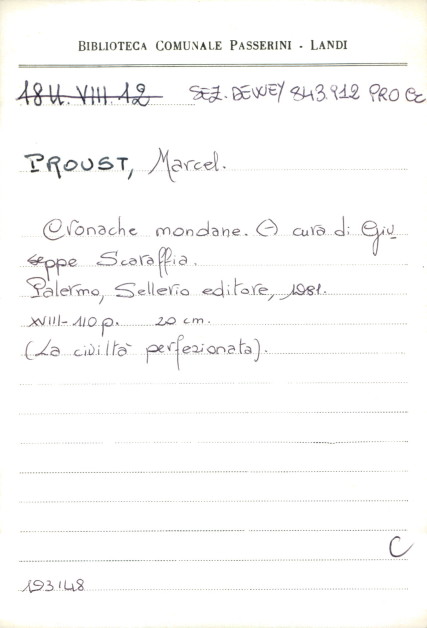 BIBLIOTECA COMUNALE PASSERINI - LANDI
18 U. VIII. 12 SEZ. DEWEY 843.912 PRO Cc
PROUST, Marcel.
Cronache mondane. (-) cura di Giu
seppe Scaraffia.
Palermo, Sellerio editore, 1981.
XVIII-110 p. 20 cm.
(La civiltà perfezionata).
C
193148